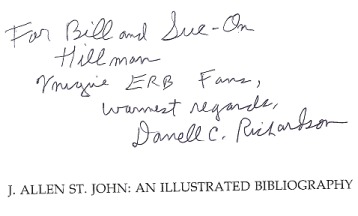 For Bill and Sue-On
Hillman
Unique ERB Fans,
warmest regards,
Darrell C. Richardson
J. ALLEN ST. JOHN: AN ILLUSTRATED BIBLIOGRAPHY